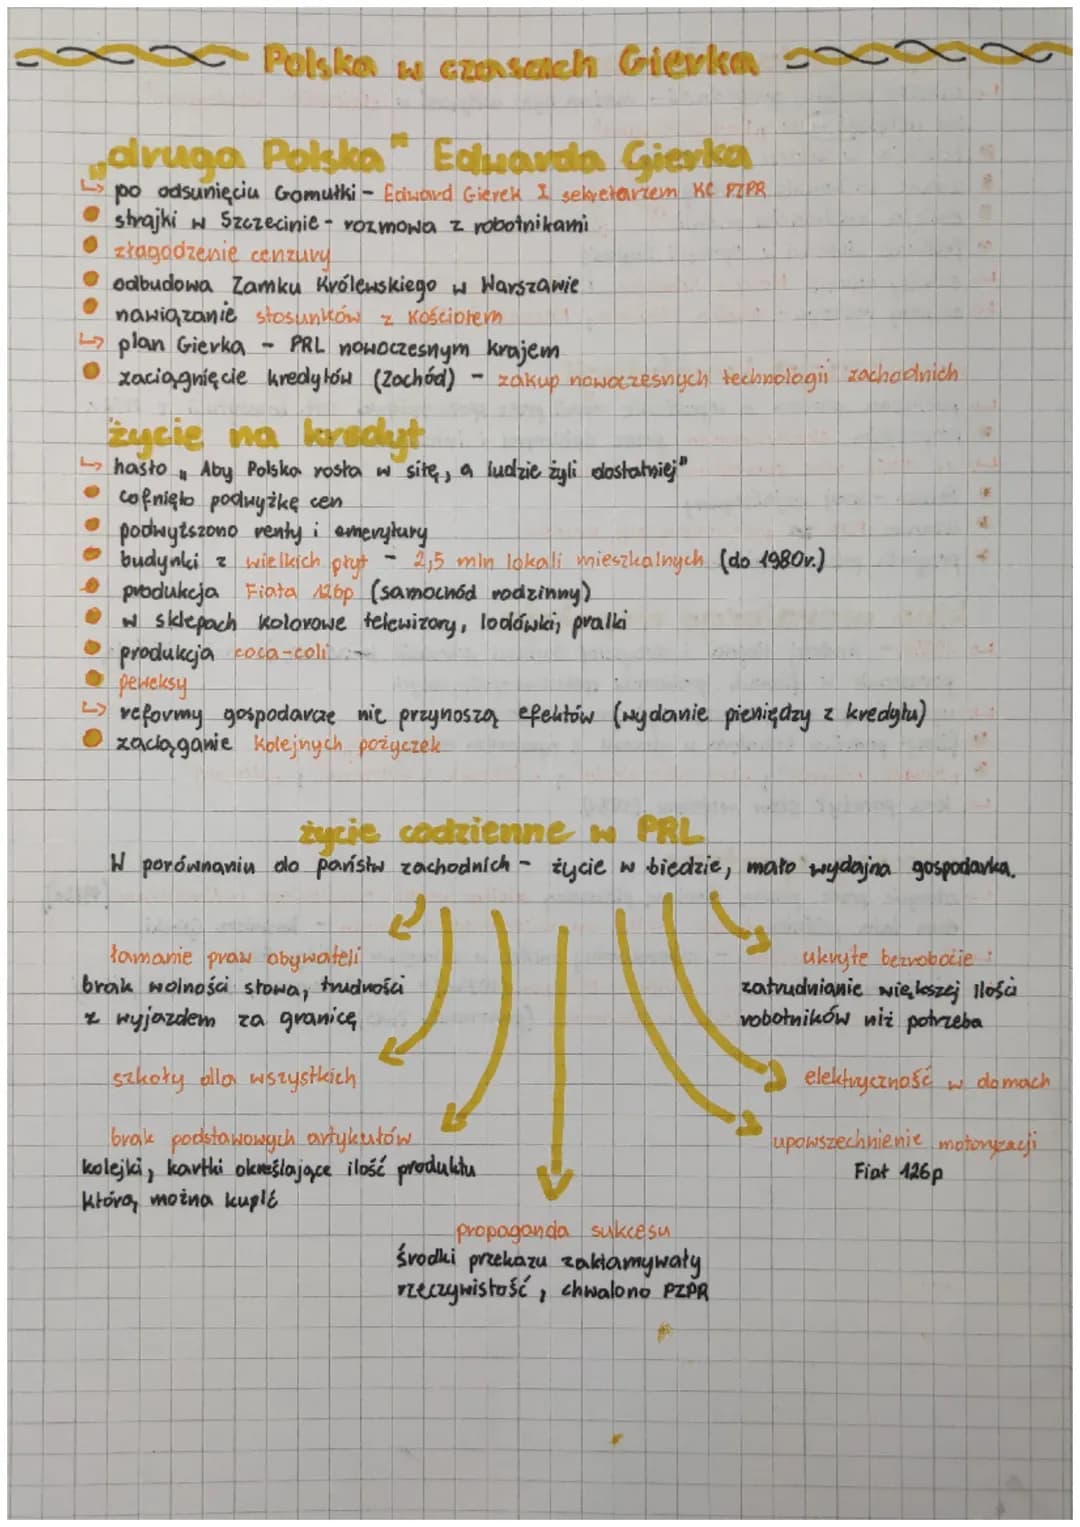 Polska w czasach Gierka
„druga Polska" Edwarda Gierka
↳ po odsunięciu Gomułki - Edward Gierek I sekretarzem KC PZPR
• strajki w Szczecinie - rozmowa z robotnikami
• złagodzenie cenzury
• odbudowa Zamku Królewskiego w Warszawie
• nawiązanie stosunków z Kościołem
↳ plan Gierka - PRL nowoczesnym krajem
• zaciągnięcie kredytów (Zachód) - zakup nowoczesnych technologii zachodnich
życie na kredyt
↳ hasło „Aby Polska rosła w siłę, a ludzie żyli dostatniej"
• cofnięto podwyżkę cen
• podwyższono renty i emerytury
• budynki z wielkich płyt - 2,5 mln lokali mieszkalnych (do 1980r.)
• produkcja Fiata 126p (samochód rodzinny)
• w sklepach kolorowe telewizory, lodówki, pralki
• produkcja coca-coli
• peweksy
↳ reformy gospodarcze nie przynoszą efektów (wydanie pieniędzy z kredytu)
• zaciąganie kolejnych pożyczek
życie codzienne w PRL
W porównaniu do państw zachodnich - życie w biedzie, mało wydajna gospodarka.
łamanie praw obywateli
brak wolności słowa, trudności
z wyjazdem za granicę
szkoły dla wszystkich
brak podstawowych artykułów
kolejki, kartki określające ilość produktu
którą można kupić
propaganda sukcesu
środki przekazu zakłamywały
rzeczywistość, chwalono PZPR
ukryte bezrobocie:
zatrudnianie większej ilości
robotników niż potrzeba
elektryczność w domach
upowszechnienie motoryzacji
Fiat 126p